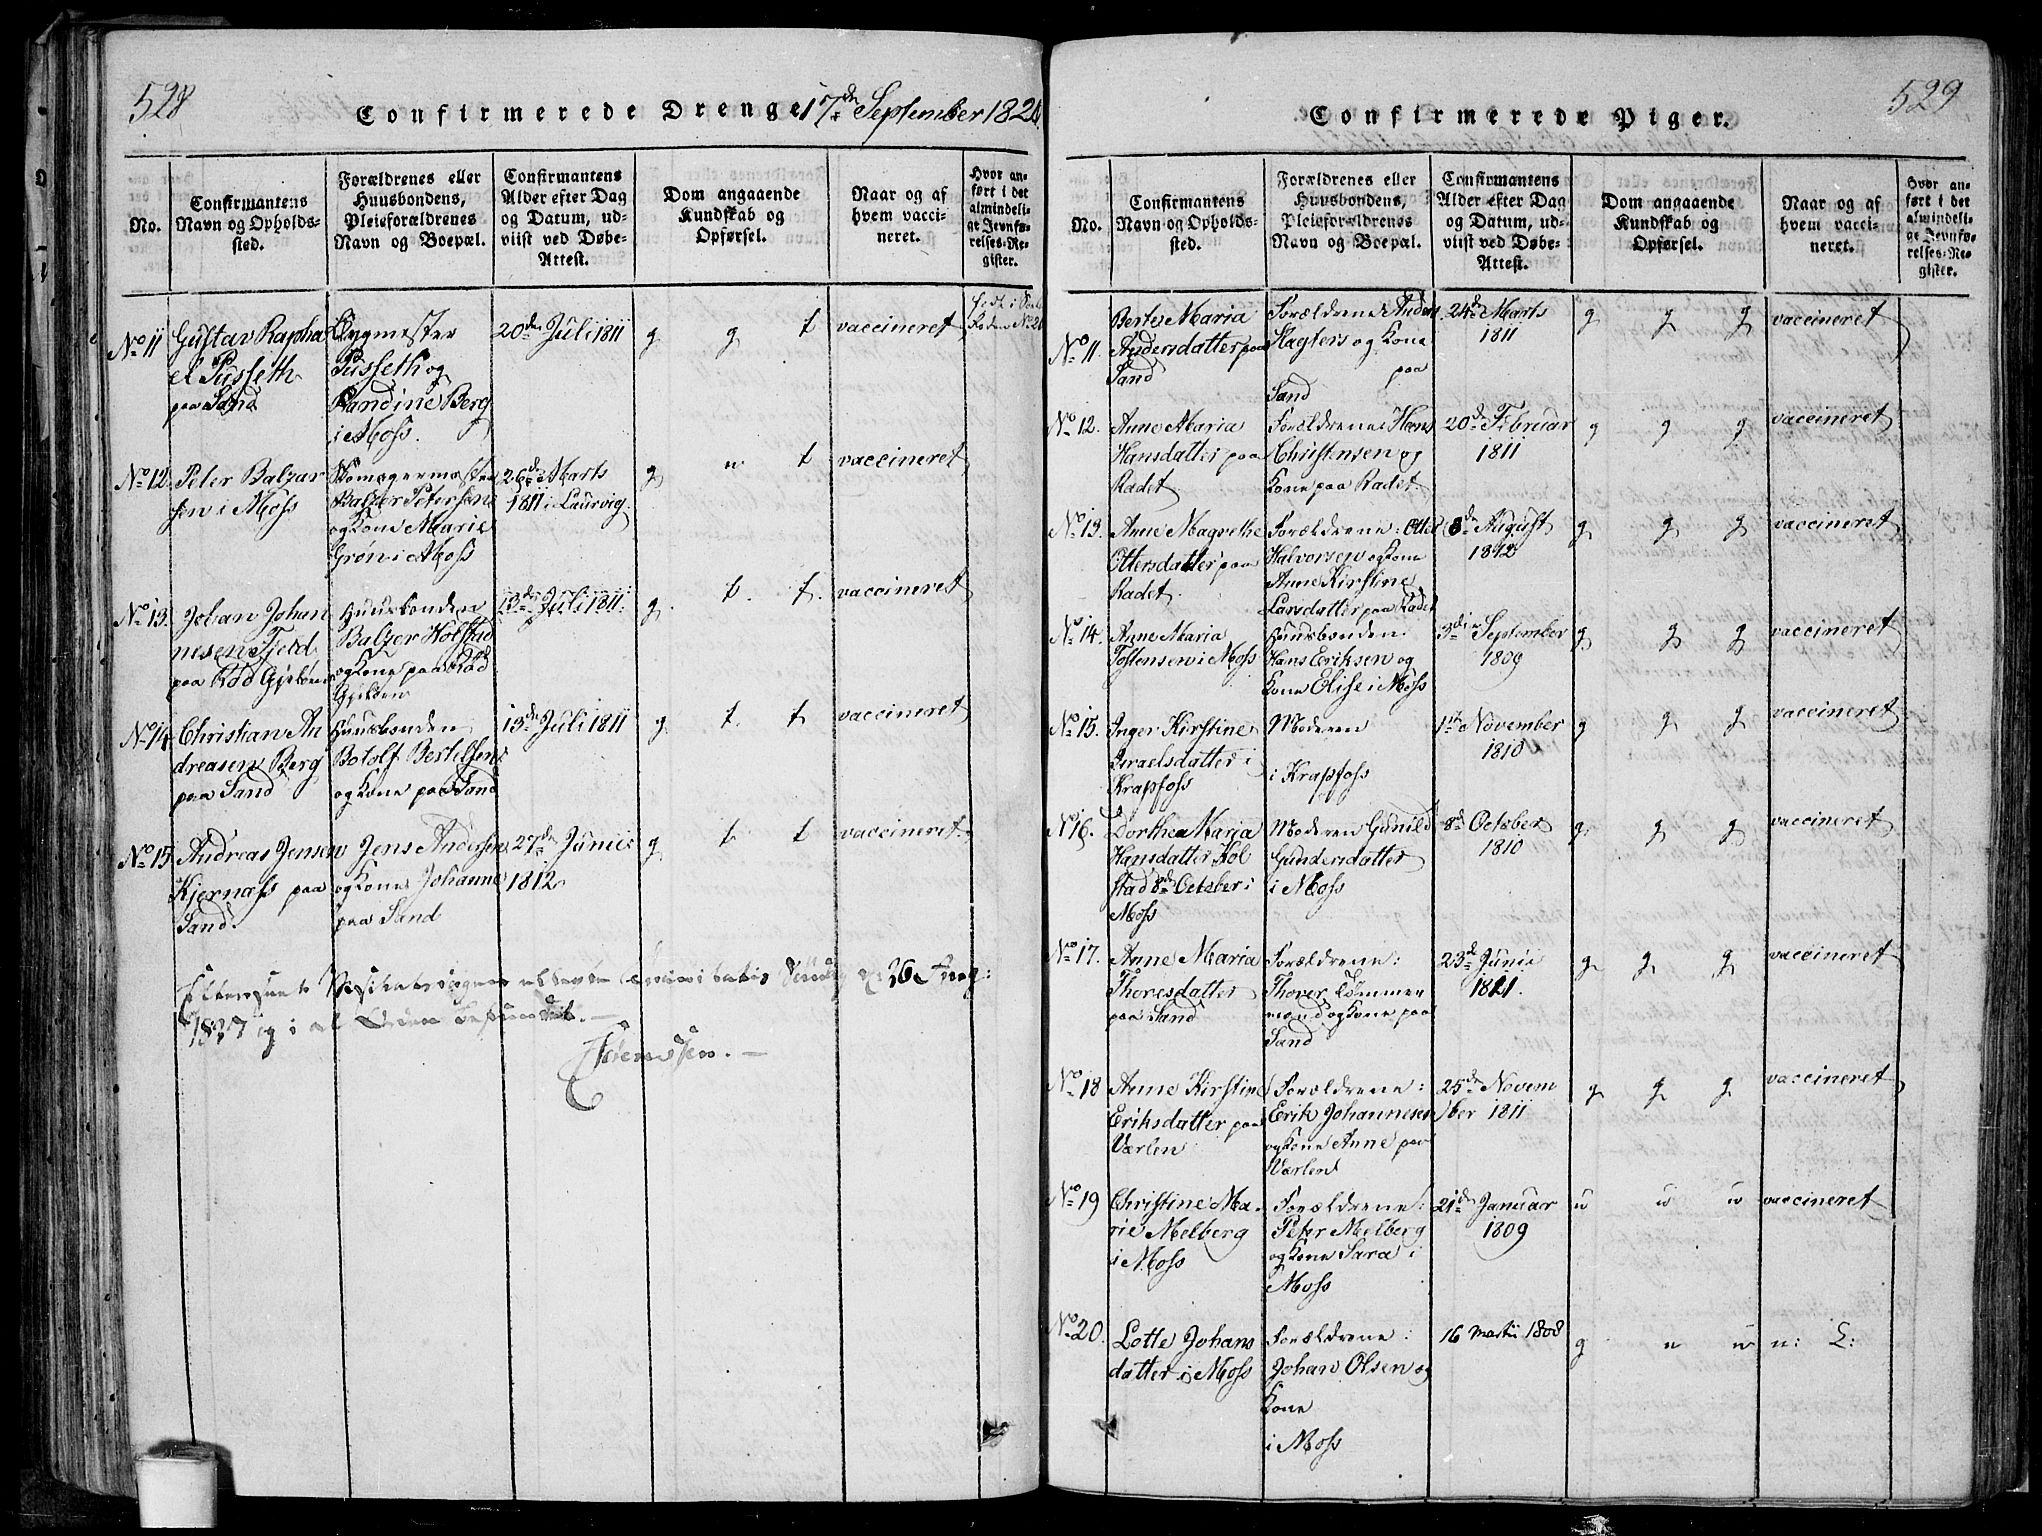 528
Confirmerede Drenge 17de September 1826.
No.
Confirmantens
Navn og Opholds-
sted.
Forældrenes eller
Huusbondens,
Pleieforældrenes
Navn og Boepæl.
Confirmantens
Alder efter Dag
og Datum, ud-
viist ved Døbe-
Attest.
Dom angaaende
Kundskab og
Opførsel.
Naar og af
hvem vacci-
neret.
Hvor an-
ført i det
almindeli-
ge Jevnfø-
relses-Re-
gister.
No 11
Gustav Rapha
el Pusseth
paa Sand
Bygmester
Pusseth og
Randine Berg
i Moss.
20de Juli 1811
g g t
vaccineret
No 12
Peter Balzar
sen i Moss
Skomagermester
Balzer Petersen
og Kone Marie
Grøn i Moss
26de Marts
1811 i Laurvig.
g u t
vaccineret
No 13.
Johan Johan
nesen Fjeld
paa Rød Gjelden
Huusbonden
Balzer Holstad
og Kone paa Rød
Gjelden
13de Juli 1811.
g. t. t.
vaccineret
No 14
Christian An
dreasen Berg
paa Sand
Huusbonden
Botolf Bertelsen
og Kone paa Sand
13de Juli 1811
g t. t
vaccineret
No 15
Andreas Jensen
Kjernæss paa
Sand.
Jens Andersen
og Kone Johanne
paa Sand
27de Junii
1812
g t t
vaccineret.
1827 og i al Orden befundet.
529
Confirmerede Piger.
No.
Confirmantens
Navn og Opholds-
sted.
Forældrenes eller
Huusbondens,
Pleieforældrenes
Navn og Boepæl.
Confirmantens
Alder efter Dag
og Datum, ud-
viist ved Døbe-
Attest.
Dom angaaende
Kundskab og
Opførsel.
Naar og af
hvem vacci-
neret.
Hvor an-
ført i det
almindeli-
ge Jevnfø-
relses-Re-
gister.
No 11.
Berte Maria
Andersdatter paa
Sand
Forældrene Anders
Slagters og Kone
paa
Sand
24de Marts
1811
g g g
vaccineret
No 12.
Anne Maria
Hansdatter paa
Radet
Forældrene Hans
Christensen og
Kone paa Radet
20de Februar
1811
g g g
vaccineret
No 13.
Anne Magrethe
Ottersdatter paa
Radet.
Forældrene: Otter
Halvorsen og Kone
Anne Kirstine
Larsdatter paa Radet
8de August
1812
g g g
vaccineret
No 14.
Anne Maria
Tostensen i Moss
Huusbonden
Hans Eriksen og
Kone Elise i Moss
3die September
1809
g g g
vaccineret
No 15.
Inger Kirstine
Israelsdatter i
Krapfoss
Moderen
i Krapfoss
1ste November
1810
g g g
vaccineret
No 16.
Dorthea Maria
Hansdatter Hol
stad 8de October i
Moss
Moderen Gunild
Gundersdatter
i Moss
8de October
1810
g g g
vaccineret
No 17.
Anne Maria
Thoresdatter
paa Sand
Forældrene:
Thover Tømmer
mand og Kone paa
Sand
23de Junii
1811.
g g g
vaccineret
No 18
Anne Kirstine
Eriksdatter paa
Værlen
Forældrene:
Erik Johannesen
og Kone Anne paa
Værlen
25de Novem
ber 1811
g g g
vaccineret
No 19
Christine Ma-
rie Melberg
i Moss
Forældrene:
Peter Melberg
og Kone Sara i
Moss
21de Januar
1809
u u u
vaccineret
No 20.
Lotte Johans
datter i Moss
Forældrene:
Johan Olsen og
Kone
i Moss
16 Martii 1808
g u u
n: L: